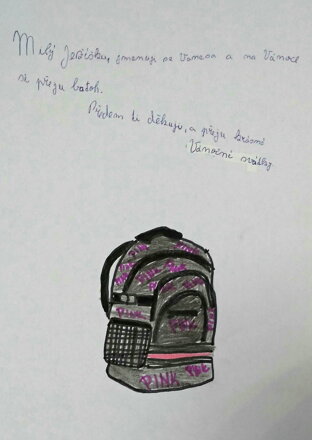 Milý Ježíšku, jmenuji se Vanesa a na Vánoce
si přeju batoh.
Předem ti děkuji, a přeju krásné
Vánoční svátky
PINK
PINK
PINK
PINK
PINK
PINK
PINK